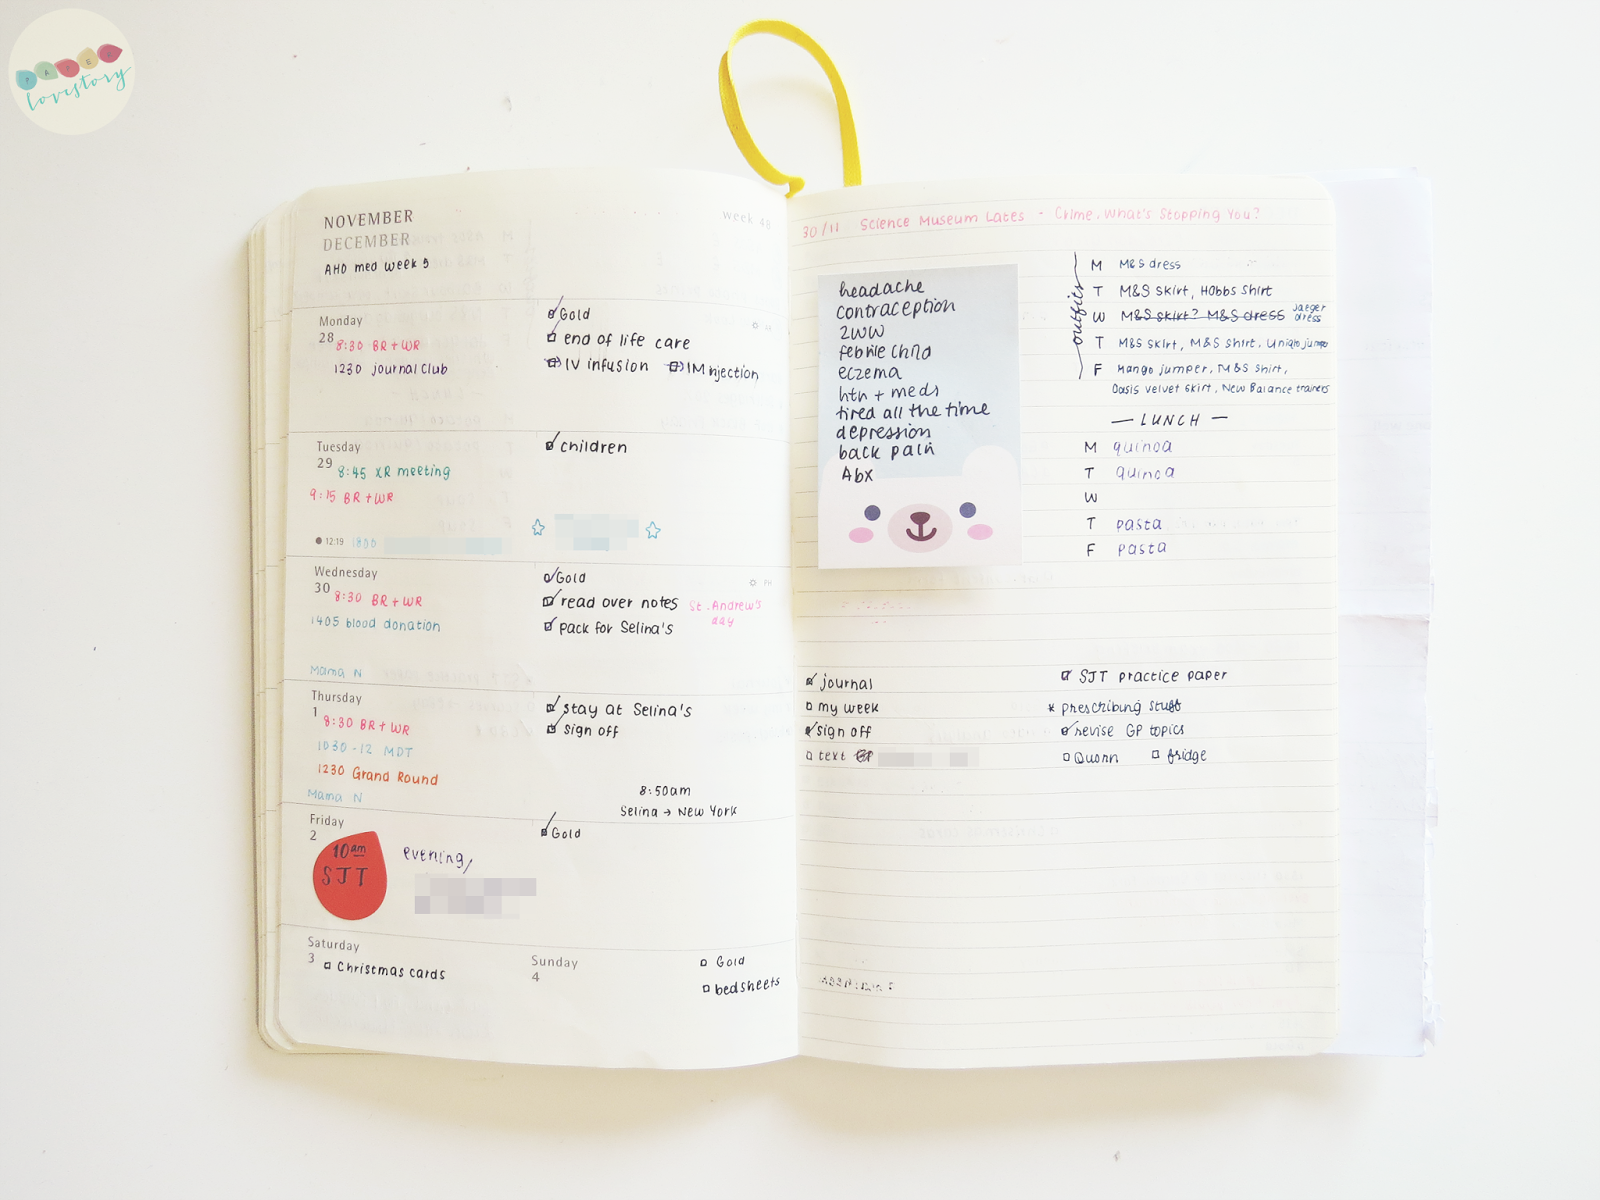 PAPER
lovestory
NOVEMBER
DECEMBER
week 48
AHO med week 5
Monday
28
8:30 BR + WR
1230 journal club
Gold
end of life care
IV infusion IM injection
Tuesday
29
8:45 XR meeting
9:15 BR + WR
12:19 1800
children
Wednesday
30
8:30 BR + WR
1405 blood donation
Mama N
Gold
read over notes
pack for Selina's
St. Andrew's
day
Thursday
1
8:30 BR + WR
1030-12 MDT
1230 Grand Round
Mama N
stay at Selina's
sign off
8:50am
Selina → New York
Friday
2
10am
SJT
evening/
Gold
Saturday
3
Christmas cards
Sunday
4
Gold
bedsheets
30/11 Science Museum Lates - Crime. What's Stopping You?
headache
contraception
2WW
febrile child
eczema
htn + meds
tired all the time
depression
back pain
Abx
outfits
M M&S dress
T M&S skirt, Hobbs shirt
W M&S skirt? M&S dress Jaeger dress
T M&S skirt, M&S shirt, Uniqlo jumper
F Mango jumper, M&S shirt,
Oasis velvet skirt, New Balance trainers
— LUNCH —
M quinoa
T quinoa
W
T pasta
F pasta
journal
my week
sign off
text
SJT practice paper
* prescribing stuff
revise GP topics
Quorn fridge